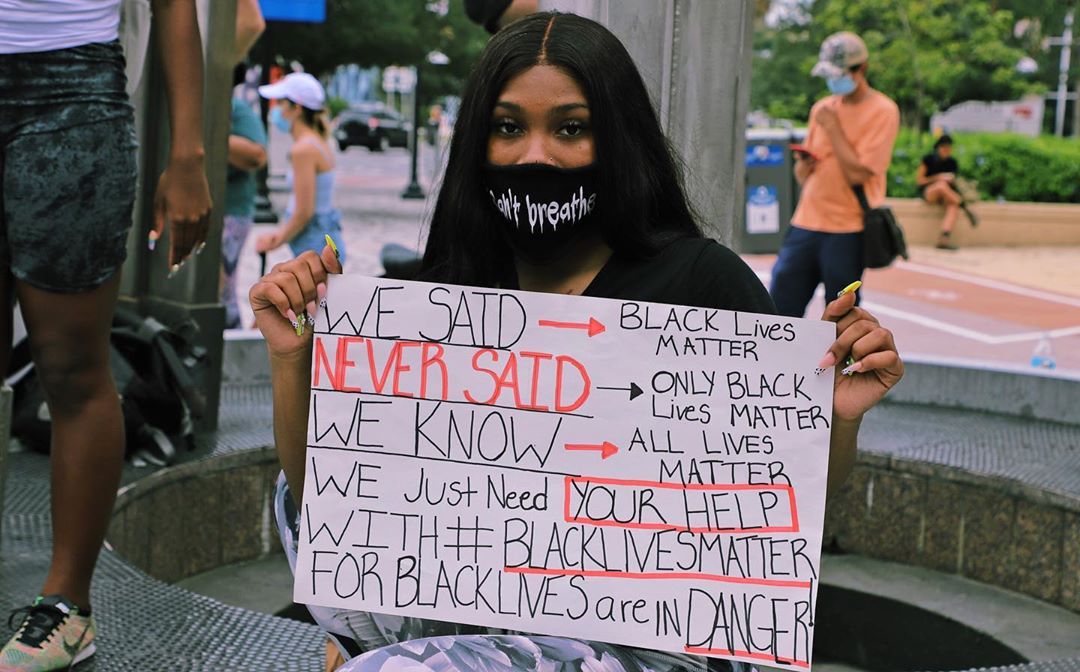 can't breathe
WE SAID → BLACK Lives
MATTER
NEVER SAID → ONLY BLACK
Lives MATTER
WE KNOW → ALL LIVES
MATTER
WE Just Need YOUR HELP
WITH # BLACKLIVESMATTER
FOR BLACK LIVES are IN DANGER!